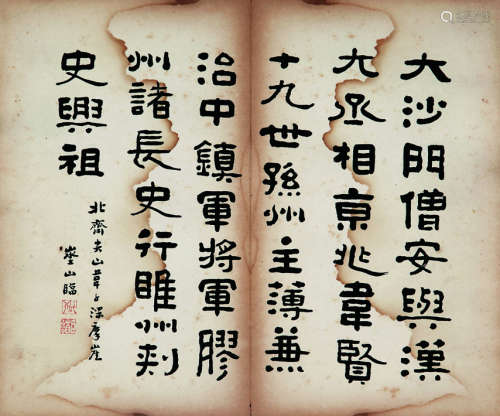 大沙門僧安與漢
大丞相京兆韋賢
十九世孫州主薄兼
治中鎮軍將軍膠
州諸長史行睢州刺
史興祖
北齊尖山韋子深摩崖
山臨